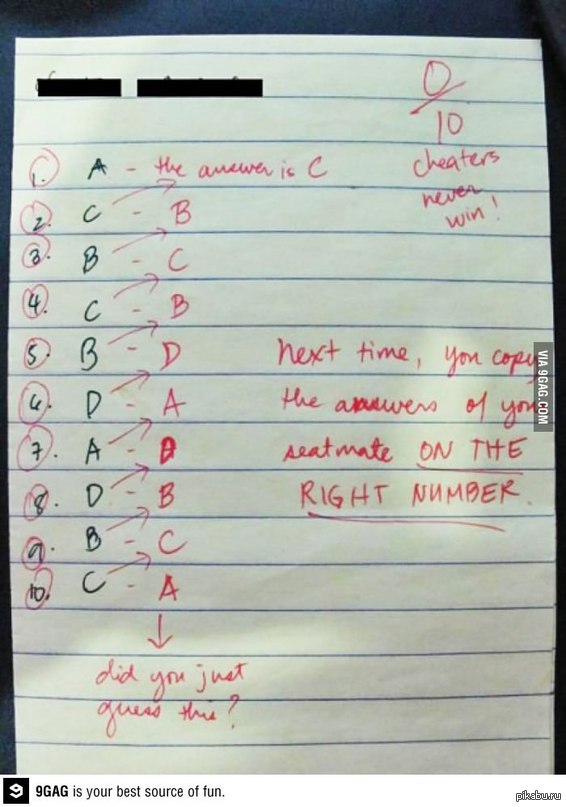 0
10
cheaters
never
win!
1. A - the answer is C
2. C - B
3. B - C
4. C - B
5. B - D
6. D - A
7. A - D
8. D - B
9. B - C
10. C - A
next time, you copy
the answers of your
seatmate ON THE
RIGHT NUMBER.
did you just
guess this?
VIA 9GAG.COM
9GAG is your best source of fun.
pikabu.ru